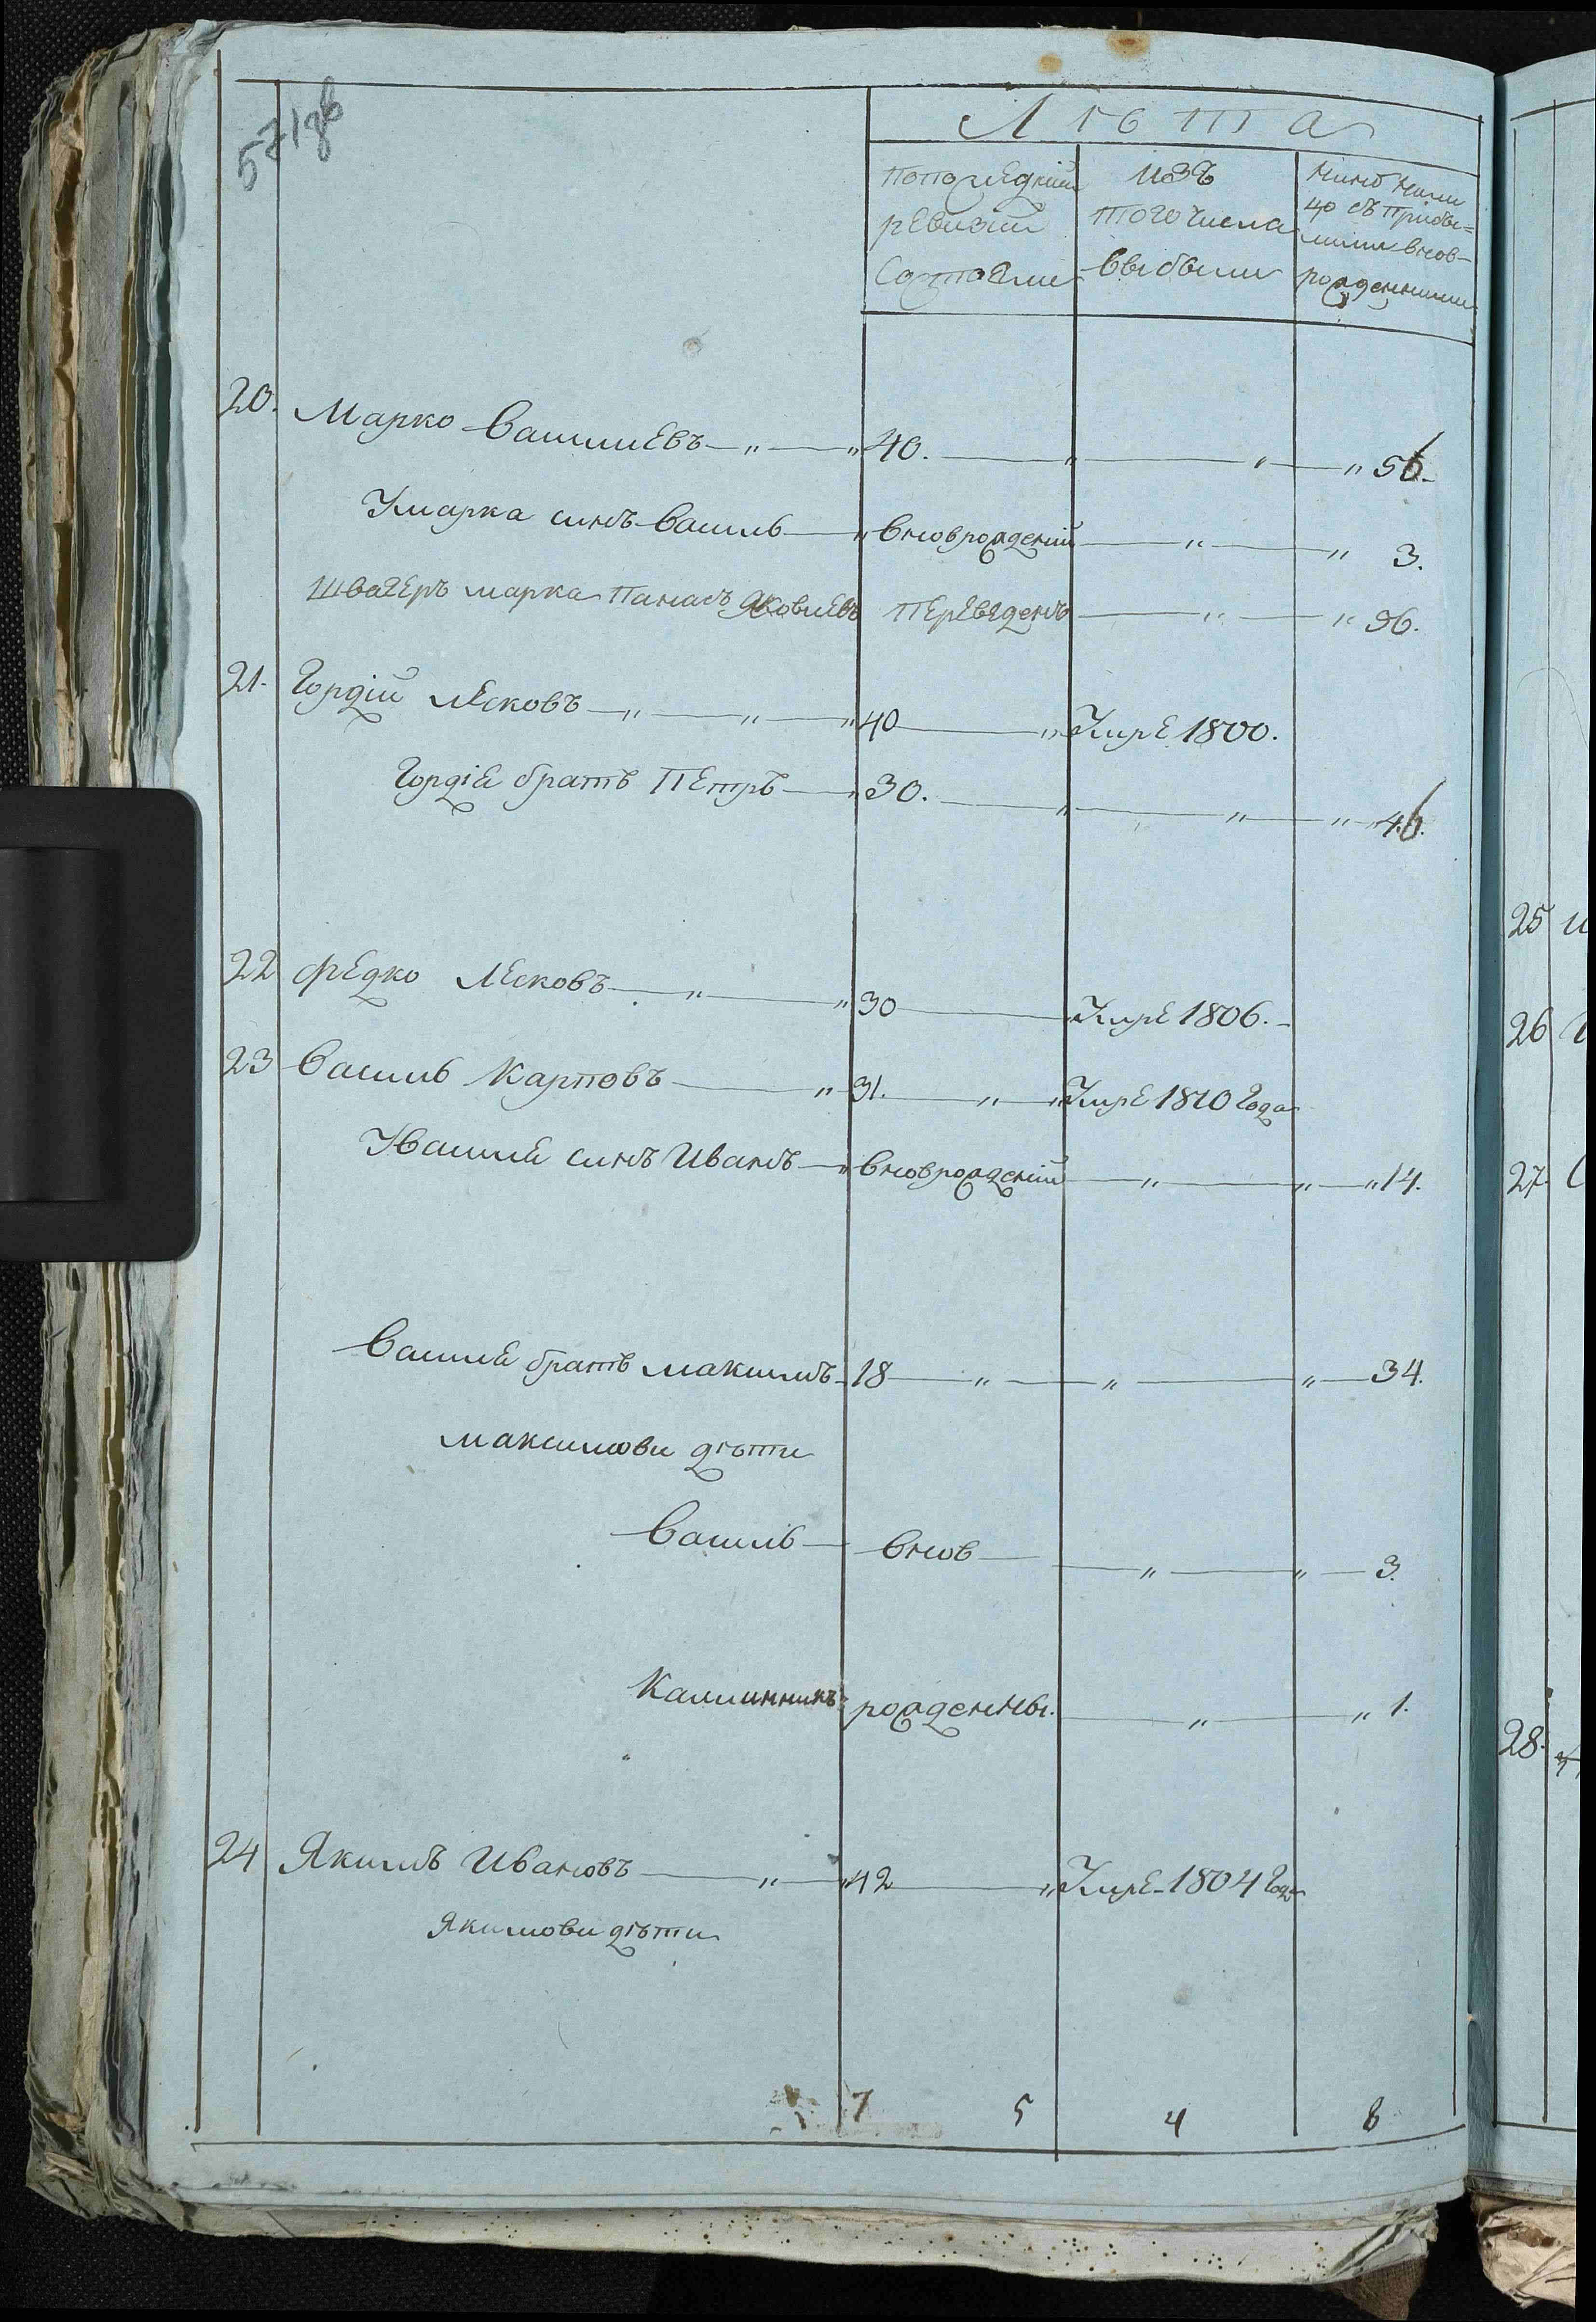 571зв
Лѣта
попоследній
ревизіи
состояли
изъ
того числа
выбыли
Нинѣ нали
цо съ прибы=
лими внов-
рожденними
20. Марко Василиевъ 40. 56.
У марка синъ Василь вноврожденій 3.
Швагеръ марка Панасъ Яковлевъ переведенъ 36.
21. Гордій Лесковъ 40 Умре 1800.
Гордія братъ Петръ 30. 46.
22 Федко Лесковъ 30 Умре 1806.
23 Василь Карповъ 31. Умре 1810 года
У Василя синъ Иванъ вноврожденій 14.
Василя братъ максимъ 18 34.
максимови дѣти
Василь внов 3.
Калинникъ рожденны. 1.
24 Якимъ Ивановъ 42 Умре 1804 года
Якимови дѣти
7 5 4 8
25
26
27.
28.